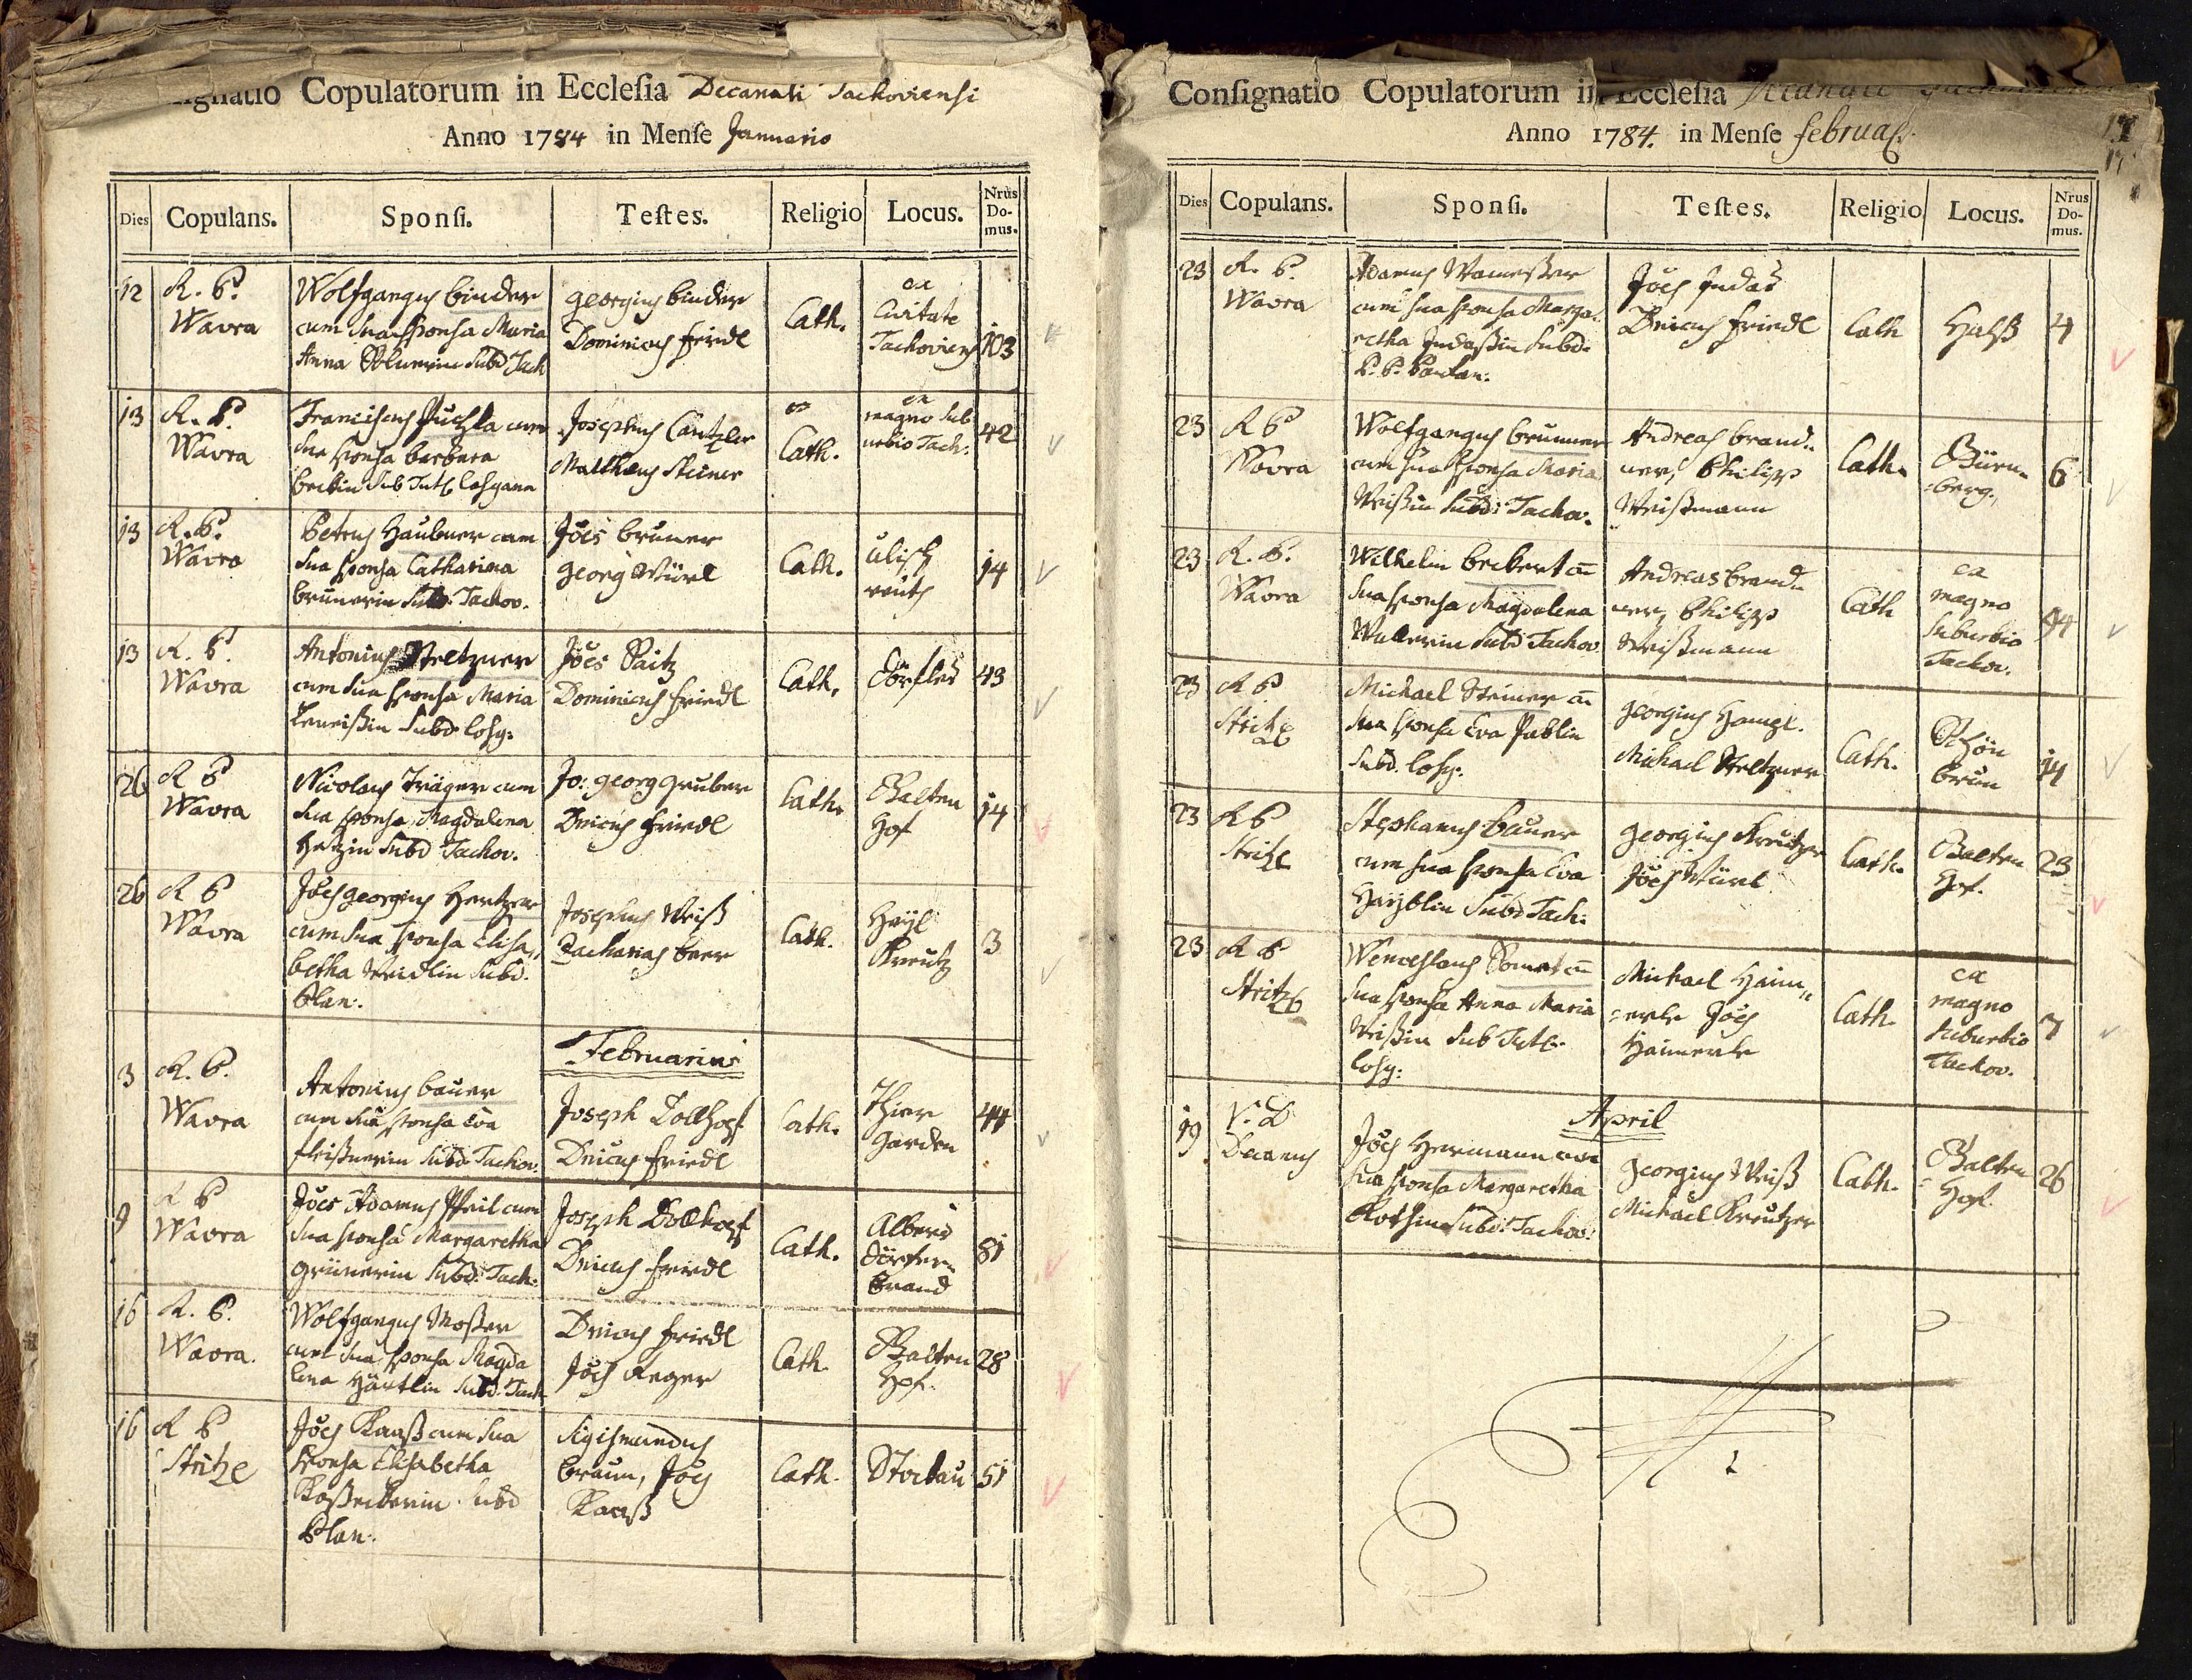 Copulatorum in Ecclesia Decanali Tachoviensi
Anno 1784 in Mense Januario
Dies Copulans. Sponsi. Testes. Religio Locus. Nrus Domus.
12
R. P.
Wavra
Wolfgangus binder
cum sua sponsa Maria
Anna subd Tach
georgius binder
Dominicus friedl
Cath.
ex
Civitate
Tachoviens
103
13
R. P.
Wavra
Franciscus Puchta cum
sua sponsa barbara
beckin sub Tutl losgana
Josephus Cantzler
Mathaeus Steiner
Cath.
ex
magno sub
urbio Tach:
42
13
R. P.
Wavra
Petrus Haubner cum
sua sponsa Catharina
brunerin subd: Tachov.
Joes bruner
georg Würl
Cath.
ulisch
reüth
14
13
R. P.
Wavra
Antonius Steltzner
cum sua sponsa Maria
subd. losg:
Joes Paitz
Dominicus friedl
Cath.
Dörfles
43
26
R P
Wavra
Nicolaus Träger cum
sua sponsa Magdalena
subd Tachov.
Jo: georg gruber
Dnicus friedl
Cath.
Galten
Hof
14
26
R P
Wavra
Joes georgius Hertzer
cum sua sponsa Elisa,,
betha Weidlin subd.
Plan:
Josephus Weiß
Zacharias beer
Cath.
Heyl
Kreutz
3
Februarius
3
R. P.
Wavra
Antonius bauer
cum sua sponsa Eva
fleißnerin subd. Tachov.
Joseph Dollhopf
Dnicus friedl
Cath.
Thier
garden
44
9
R P
Wavra
Joes Adamus Pfeil cum
sua sponsa Margaretha
grünerin subd: Tach:
Joseph Dollhopf
Dnicus friedl
Cath.
Albers
dörfer
brand
81
16
R. P.
Wavra.
Wolfgangus Moßer
cum sua sponsa Magda
lena Härtlin subd. Tach
Dnicus friedl
Joes Reger
Cath.
Galten
Hof.
28
16
R P
Stritzl
Joes Raaß cum sua
sponsa Elisabetha
subd
Plan:
Sigismundus
braun, Joes
Raaß
Cath.
Stockau
51
Consignatio Copulatorum in Ecclesia Decanali
Anno 1784. in Mense februar.
Dies Copulans. Sponsi. Testes. Religio Locus. Nrus Domus.
23
R. P.
Wavra
Adamus
cum sua sponsa Marga
retha Judaßin subd.
Joes Judas
Dnicus friedl
Cath
Halß
4
23
R P
Wavra
Wolfgangus brunner
cum sua sponsa Maria
Weißin subd: Tachov.
Andreas brand
ner, Philipp
Weißmann
Cath.
Bürn
berg.
6
23
R. P.
Wavra
Wilhelm beckert cū
sua sponsa Magdalena
Wallerin subd Tachov
Andreas brand
ner, Philipp
Weißmann
Cath
ex
magno
suburbio
Tachov.
94
23
R P
Stritzl
Michael Steiner cū
sua sponsa Eva Pablin
subd. losg:
georgius Hampl.
Michael Steltzner
Cath.
Schön
brun
14
23
R P
Stritzl
Stephanus bauer
cum sua sponsa Eva
Hayblin subd Tach:
georgius Kreutzer
Joes Würl
Cath.
Galten
Hof.
23
23
R P
Stritzl
Wenceslaus cū
sua sponsa Anna Maria
Weißin sub Tutl:
losg:
Michael Haim,,
erle Joes
Haimerle
Cath.
ex
magno
suburbio
Tachov.
7
April
19
V: D
Decanus
Joes Hermann cum
sua sponsa Margaretha
Rothin subd: Tachov.
georgius Weiß
Michael Kreutzer
Cath.
Galten
Hof.
26